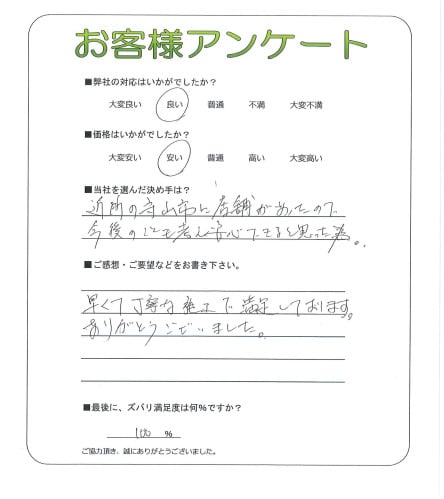 お客様アンケート
■弊社の対応はいかがでしたか?
大変良い 良い 普通 不満 大変不満
■価格はいかがでしたか?
大変安い 安い 普通 高い 大変高い
■当社を選んだ決め手は?
近所の守山市に店舗があったので
今後のことも考え安心できると思った為。
■ご感想・ご要望などをお書き下さい。
早くて丁寧な施工で満足しております。
ありがとうございました。
■最後に、ズバリ満足度は何%ですか?
100 %
ご協力頂き、誠にありがとうございました。